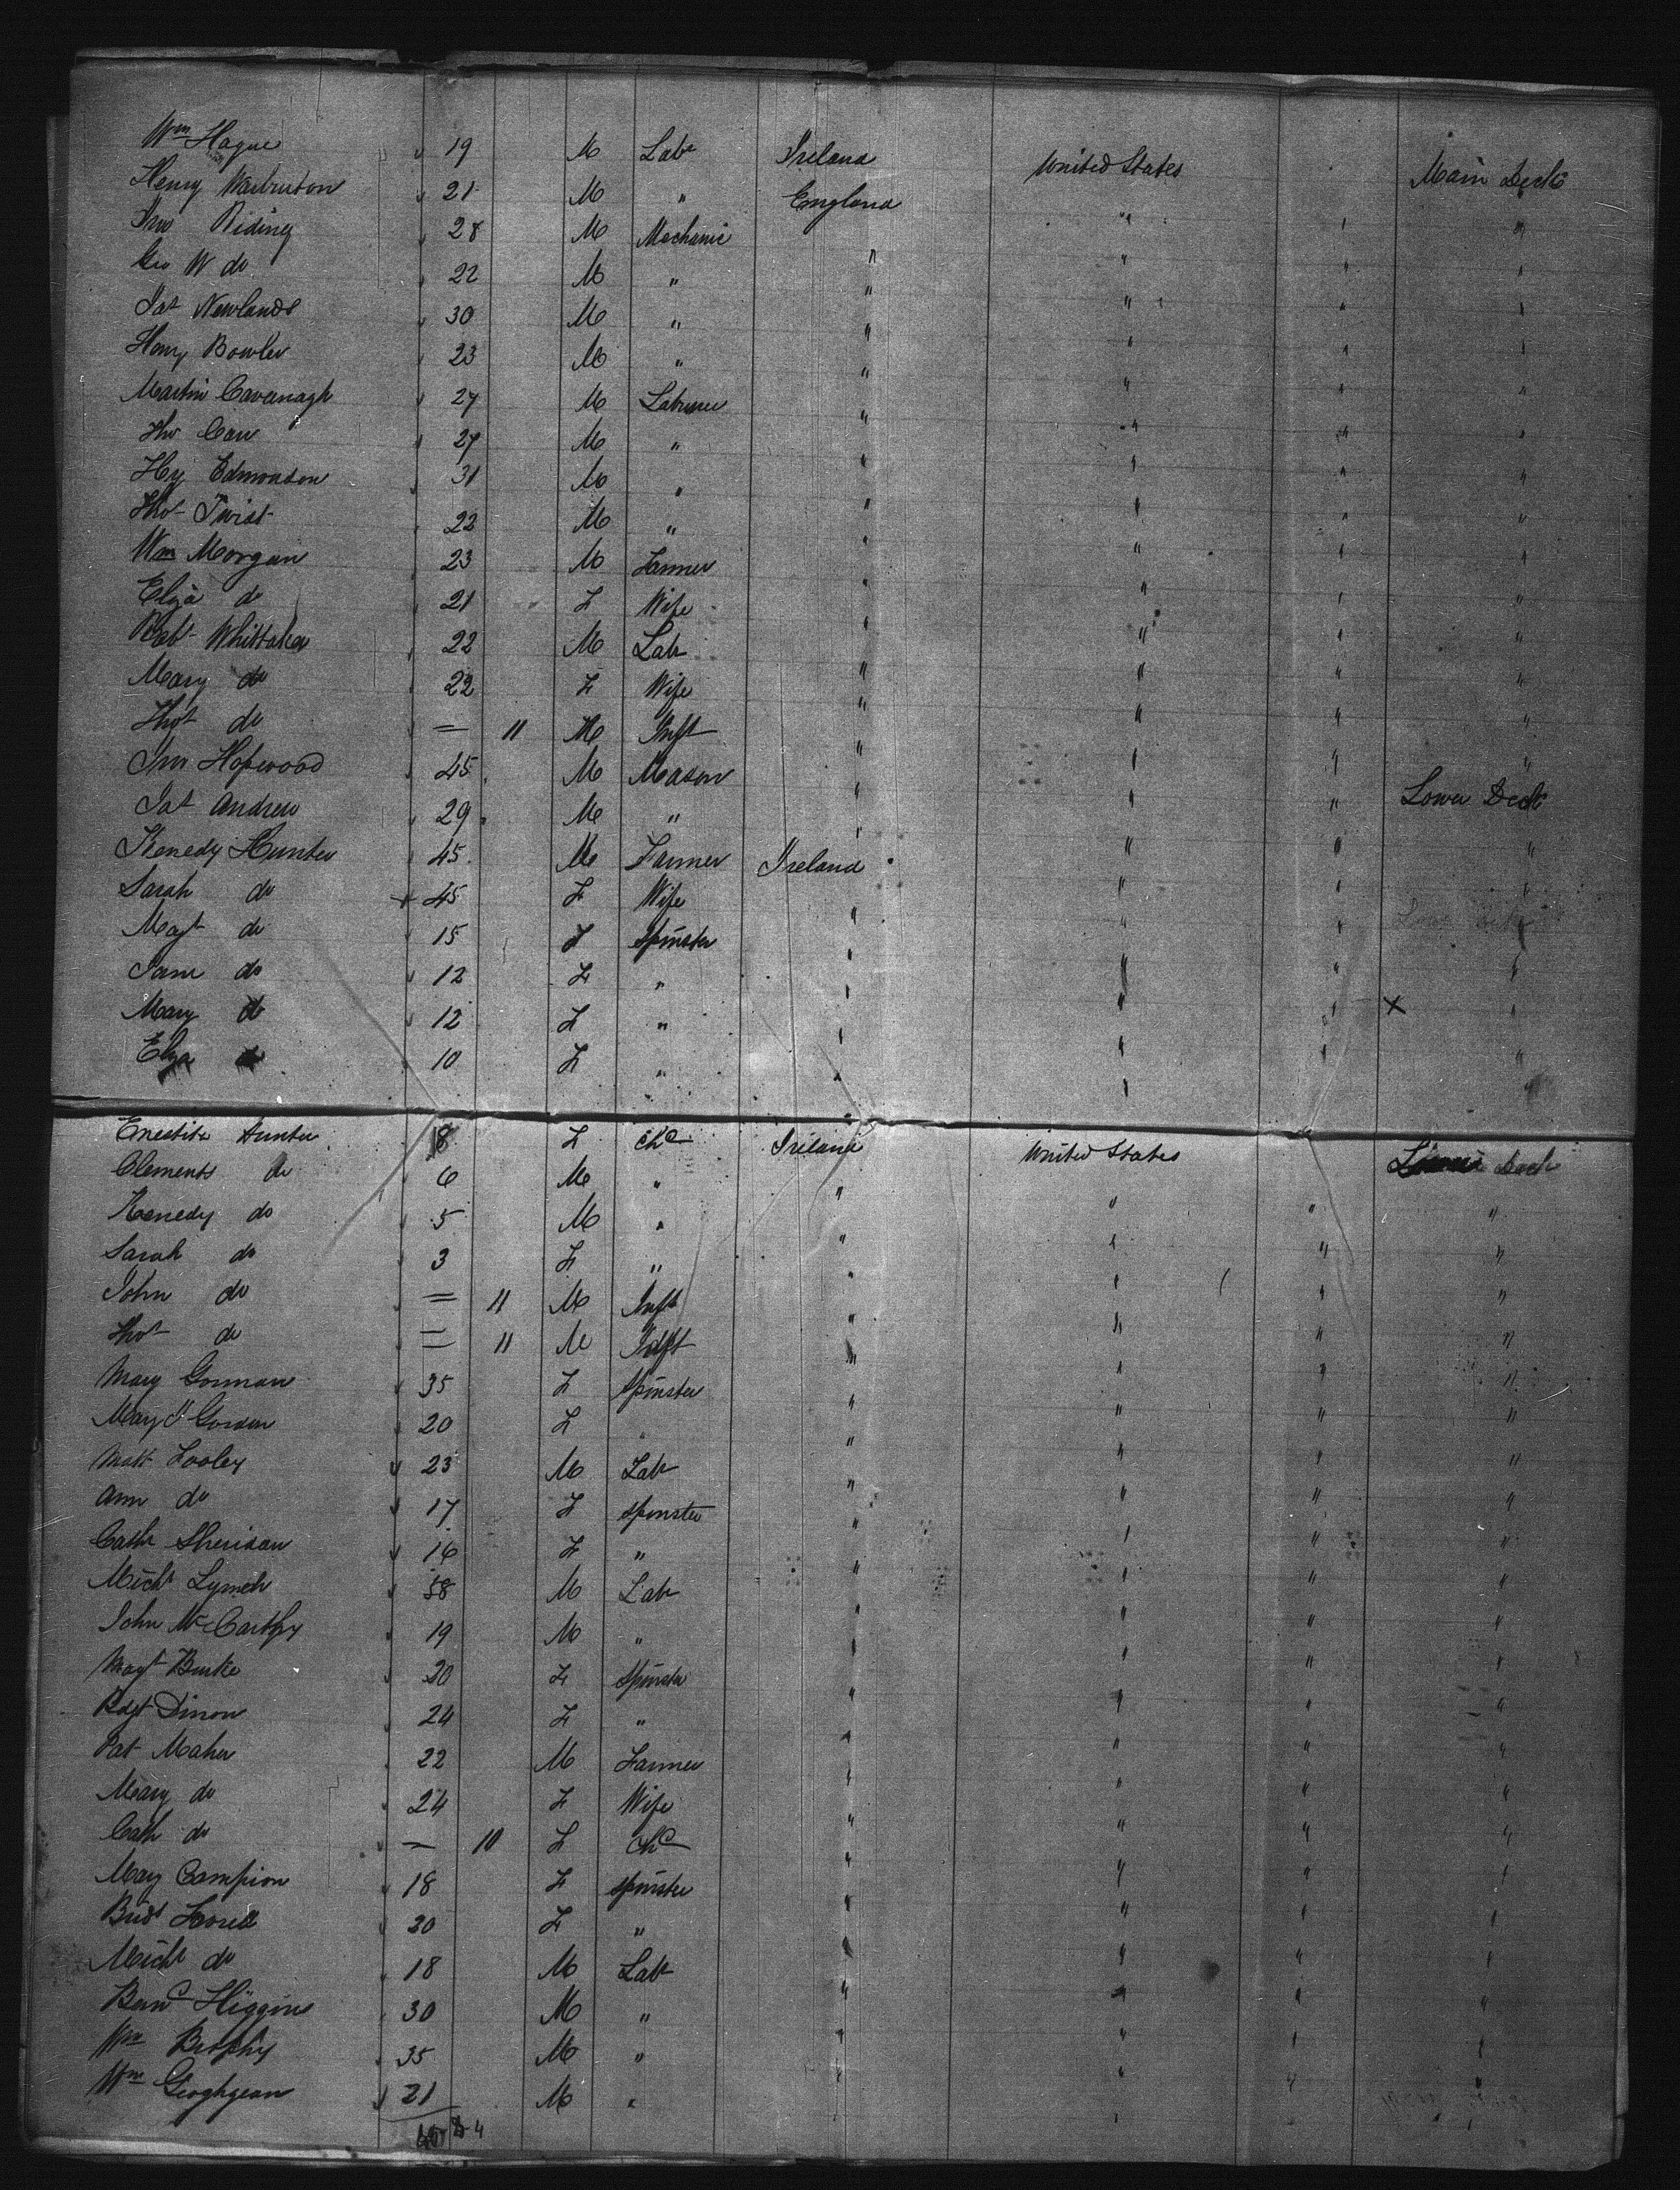 Wm Hague 19 M Labr Ireland United States Main Deck
Henry Warburton 21 M " England " " "
Jno Riding 28 M Mechanic " " " "
Geo W do 22 M " " " " "
Jas Newlands 30 M " " " " "
Henry Bowler 23 M " " " " "
Martin Cavanagh 27 M Labourer " " " "
27 M " " " " "
Hy Edmonson 31 M " " " " "
Thos Twist 22 M " " " " "
Wm Morgan 23 M Farmer " " " "
Eliza do 21 F Wife " " " "
Robt Whittaker 22 M Labr " " " "
Mary do 22 F Wife " " " "
Thos do = 11 M Inft " " " "
Jno Hopwood 45 M Mason " " " "
Jas Andrew 29 M " " " " Lower Deck
Kenedy Hunter 45 M Farmer Ireland " " "
Sarah do 45 F Wife " " " "
Magt do 15 F Spinster " " " "
Jane do 12 F " " " " "
Mary do 12 F " " " " X "
Eliza do 10 F " " " " "
Hunter 8 F Chd Ireland United States Deck
Clements do 6 M " " " " "
Kenedy do 5 M " " " " "
Sarah do 3 F " " " " "
John do = 11 M Inft " " " "
Thos do = 11 M Inft " " " "
Mary Gorman 35 F Spinster " " " "
Mary 20 F " " " " "
Matt Looley 23 M Labr " " " "
Ann do 17 F Spinster " " " "
Cath Sheridan 16 F " " " " "
Michl Lynch 58 M Labr " " " "
John McCarthy 19 M " " " " "
Magt Burke 20 F Spinster " " " "
Bdgt 24 F " " " " "
Pat Maher 22 M Farmer " " " "
Mary do 24 F Wife " " " "
Cath do = 10 F Chd " " " "
Mary Campion 18 F Spinster " " " "
Bridt 20 F " " " " "
Michl do 18 M Labr " " " "
Bernd Higgins 30 M " " " " "
Wm Brophy 35 M " " " " "
Wm Geoghgean 21 M " " " " "